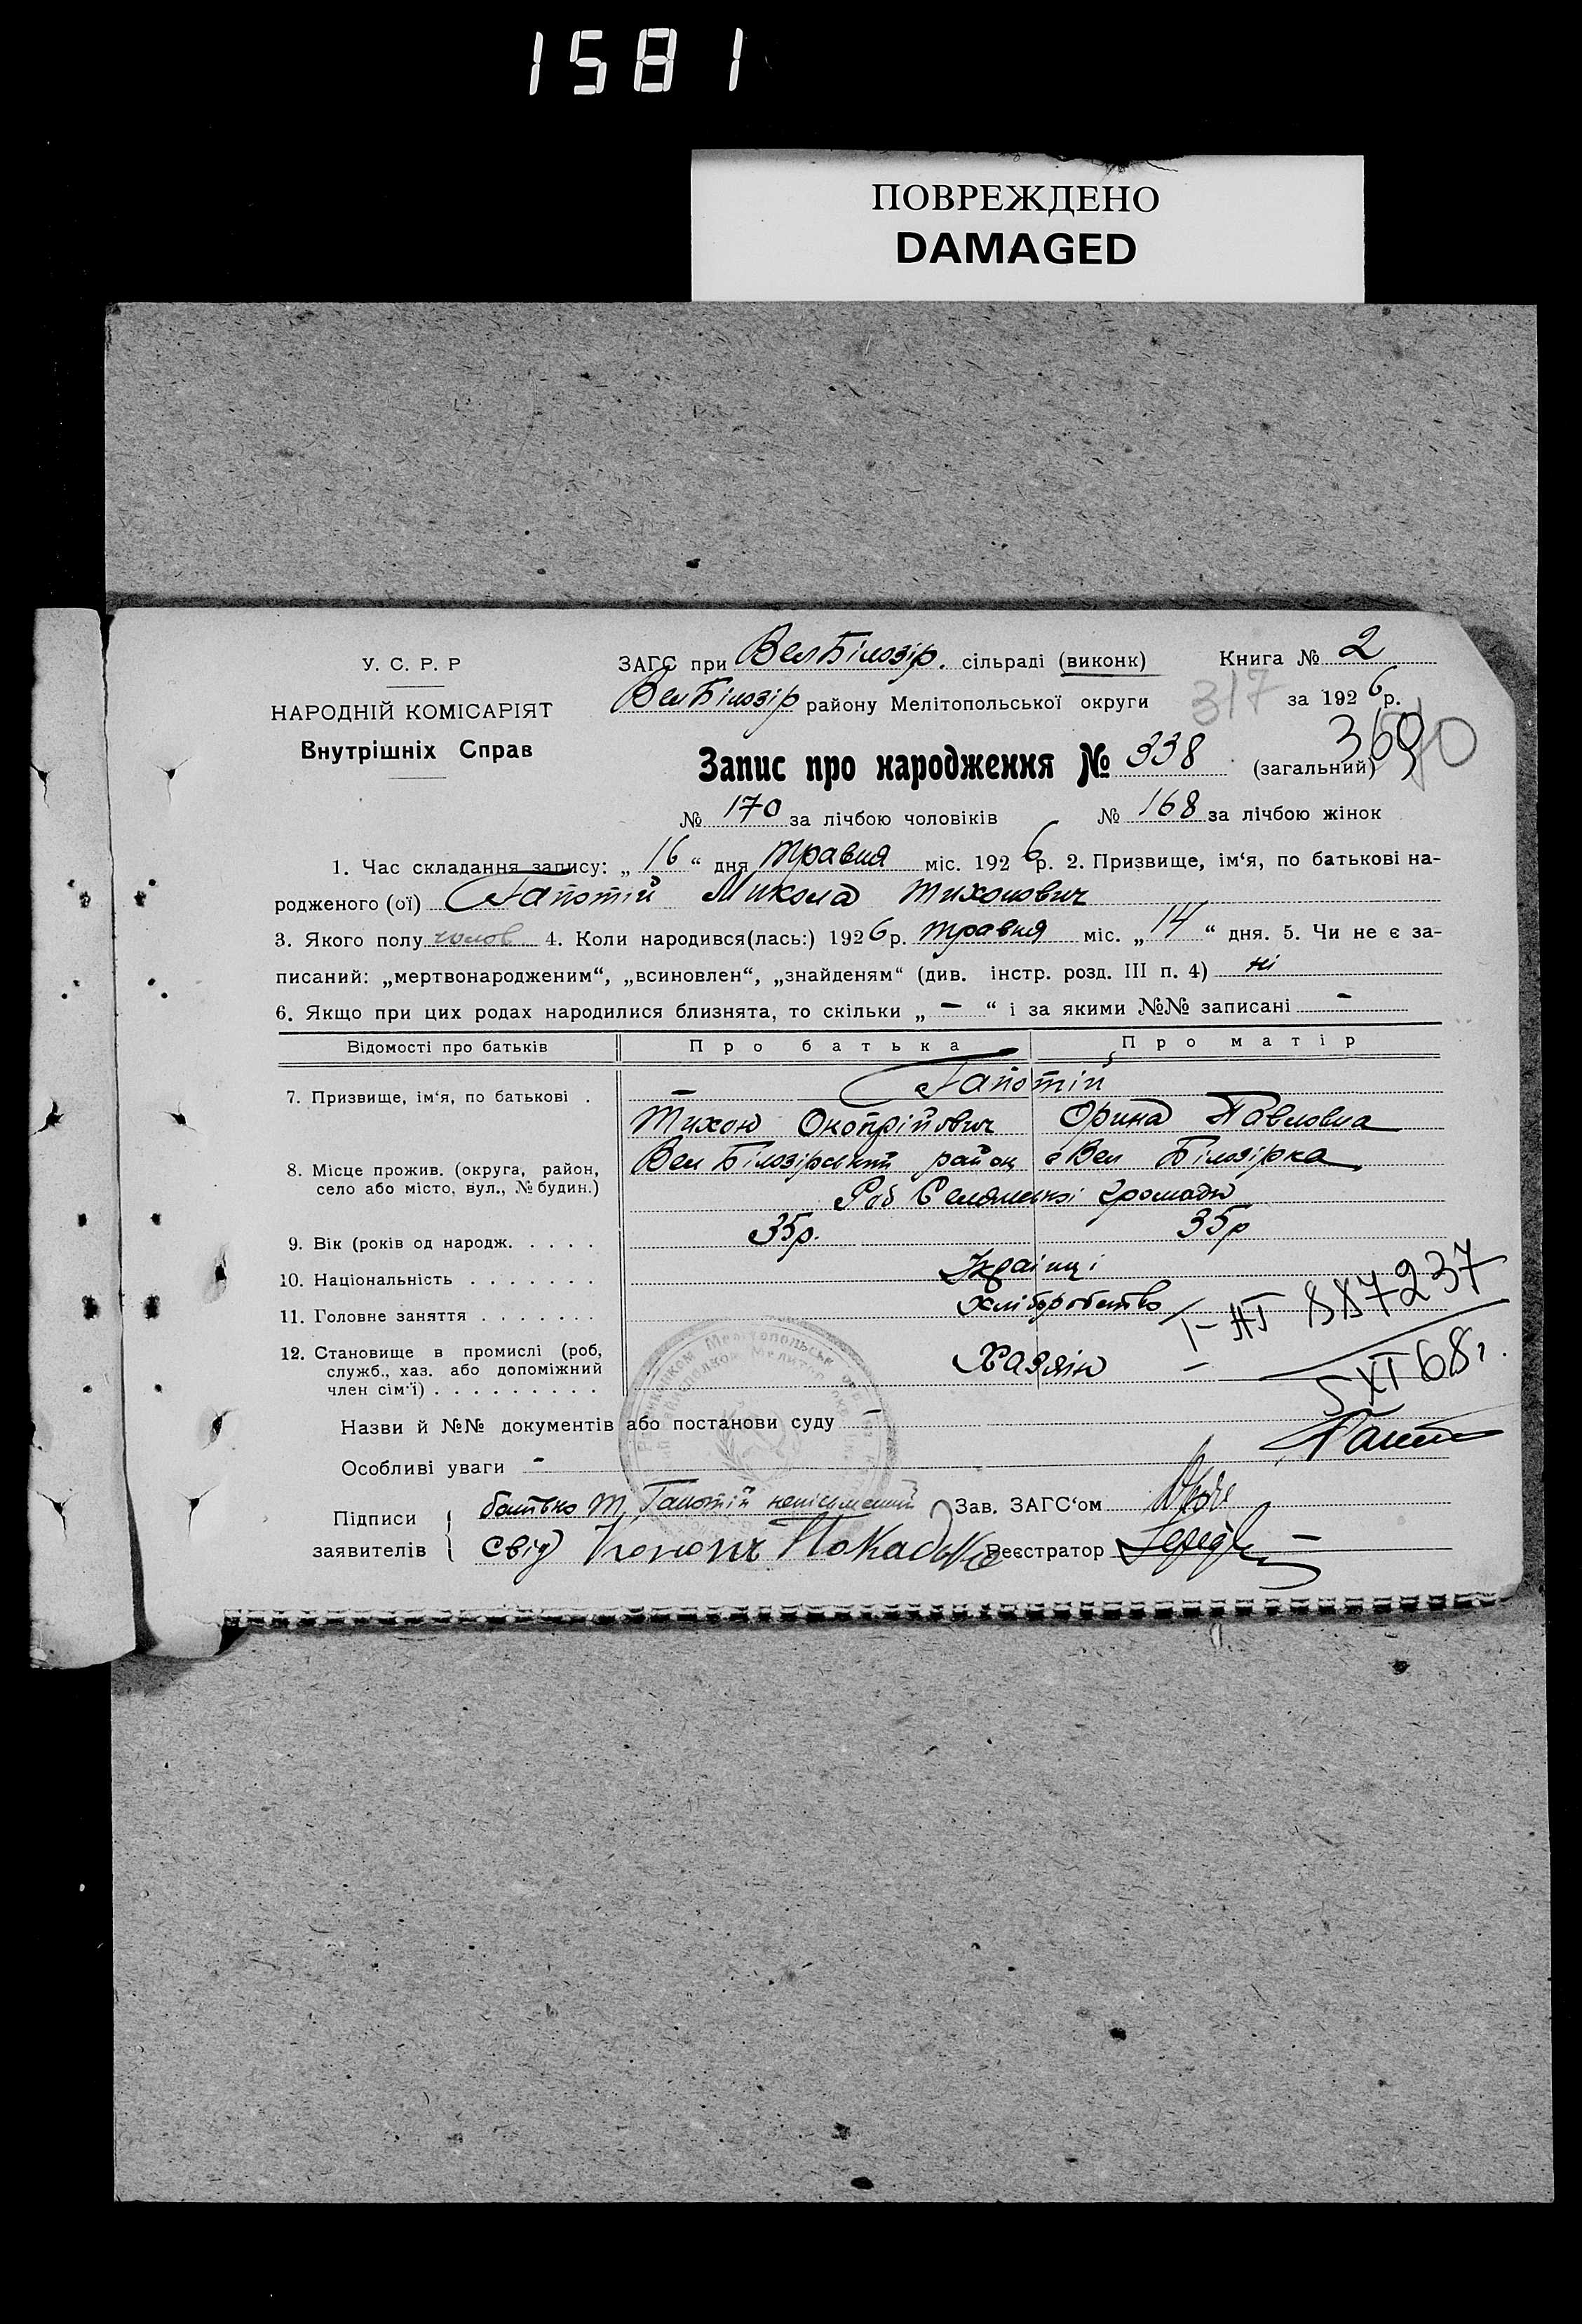 1581
ПОВРЕЖДЕНО
DAMAGED
У. С. Р. Р
НАРОДНІЙ КОМІСАРІЯТ
Внутрішніх Справ
ЗАГС при Вел Білозір. сільраді (виконк) Книга № 2
Вел Білозір району Мелітопольської округи 317 за 1926 р.
Запис про народження № 338 (загальний)
№ 170 за лічбою чоловіків № 168 за лічбою жінок
1. Час складання запису: „16“ дня травня міс. 1926 р. 2. Призвище, ім‘я, по батькові на-
родженого (ої) Гапотій Микола Тихонович
3. Якого полу чолов 4. Коли народився(лась:) 1926 р. травня міс. „14“ дня. 5. Чи не є за-
писаний: „мертвонародженим“, „всиновлен“, „знайденям“ (див. інстр. розд. III п. 4) ні
6. Якщо при цих родах народилися близнята, то скільки „ – “ і за якими №№ записані –
Відомості про батьків Про батька Про матір
7. Призвище, ім‘я, по батькові . Гапотій
Тихон Окопрійович Орина Павловна
8. Місце прожив. (округа, район,
село або місто, вул., № будин.)
Вел Білозірський район с Вел Білозірка
Роб Селянської громади
9. Вік (років од народж. . . . . 35р. 35р
10. Національність . . . . . . . Українці
11. Головне заняття . . . . . . . Хліборобство
12. Становище в промислі (роб,
служб., хаз. або допоміжний
член сім‘ї) . . . . . . . . . Хазяїн –
I-НГ 887237
5 XI 68г.
Назви й №№ документів або постанови суду –
Особливі уваги –
Підписи
заявителів
батько Т. Гапотій неписьменний Зав. ЗАГС‘ом
свід Реєстратор